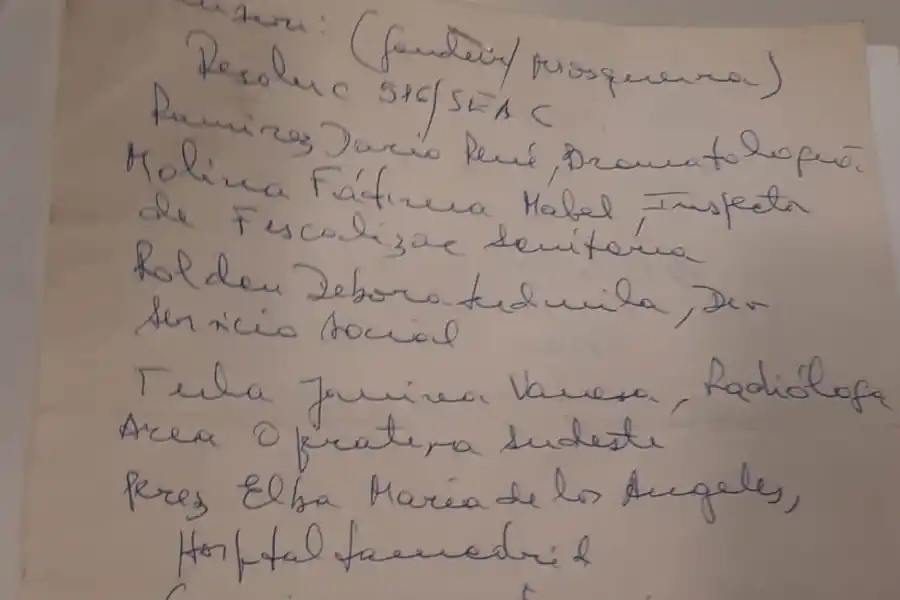 Resoluc 516/SEAC
Ramirez Dario René, Bromatología.
Molina Fátima Mabel, Inspector
de Fiscalizac Sanitaria
Roldan Debora Ludmila, Div
Servicio Social
Tula Janina Vanesa, Radióloga
Area Operativa Sudeste
Perez Elba María de los Angeles,
Hospital